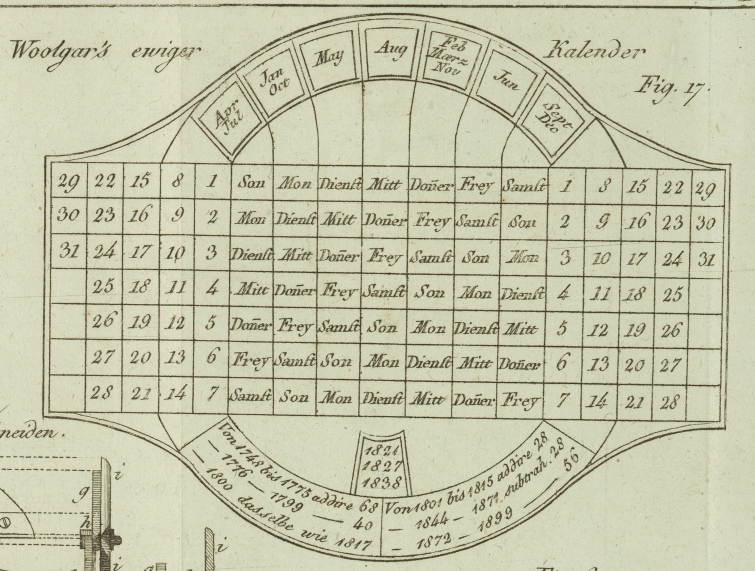 Woolgar's ewiger Kalender
Fig. 17.
Apr Jul
Jan Oct
May
Aug
Feb Mærz Nov
Jun
Sept Dec
29 22 15 8 1 Son Mon Dienſt Mitt Don̄er Frey Samſt 1 8 15 22 29
30 23 16 9 2 Mon Dienſt Mitt Don̄er Frey Samſt Son 2 9 16 23 30
31 24 17 10 3 Dienſt Mitt Don̄er Frey Samſt Son Mon 3 10 17 24 31
25 18 11 4 Mitt Don̄er Frey Samſt Son Mon Dienſt 4 11 18 25
26 19 12 5 Don̄er Frey Samſt Son Mon Dienſt Mitt 5 12 19 26
27 20 13 6 Frey Samſt Son Mon Dienſt Mitt Don̄er 6 13 20 27
28 21 14 7 Samſt Son Mon Dienſt Mitt Don̄er Frey 7 14 21 28
Von 1748 bis 1775 addire 68
— 1776 — 1799 — 40
— 1800 dasselbe wie 1817
1821
1827
1838
Von 1801 bis 1815 addire 28
— 1844 — 1871 subtrah. 28
— 1872 — 1899 — 56
neiden.
i
g
h
i
i